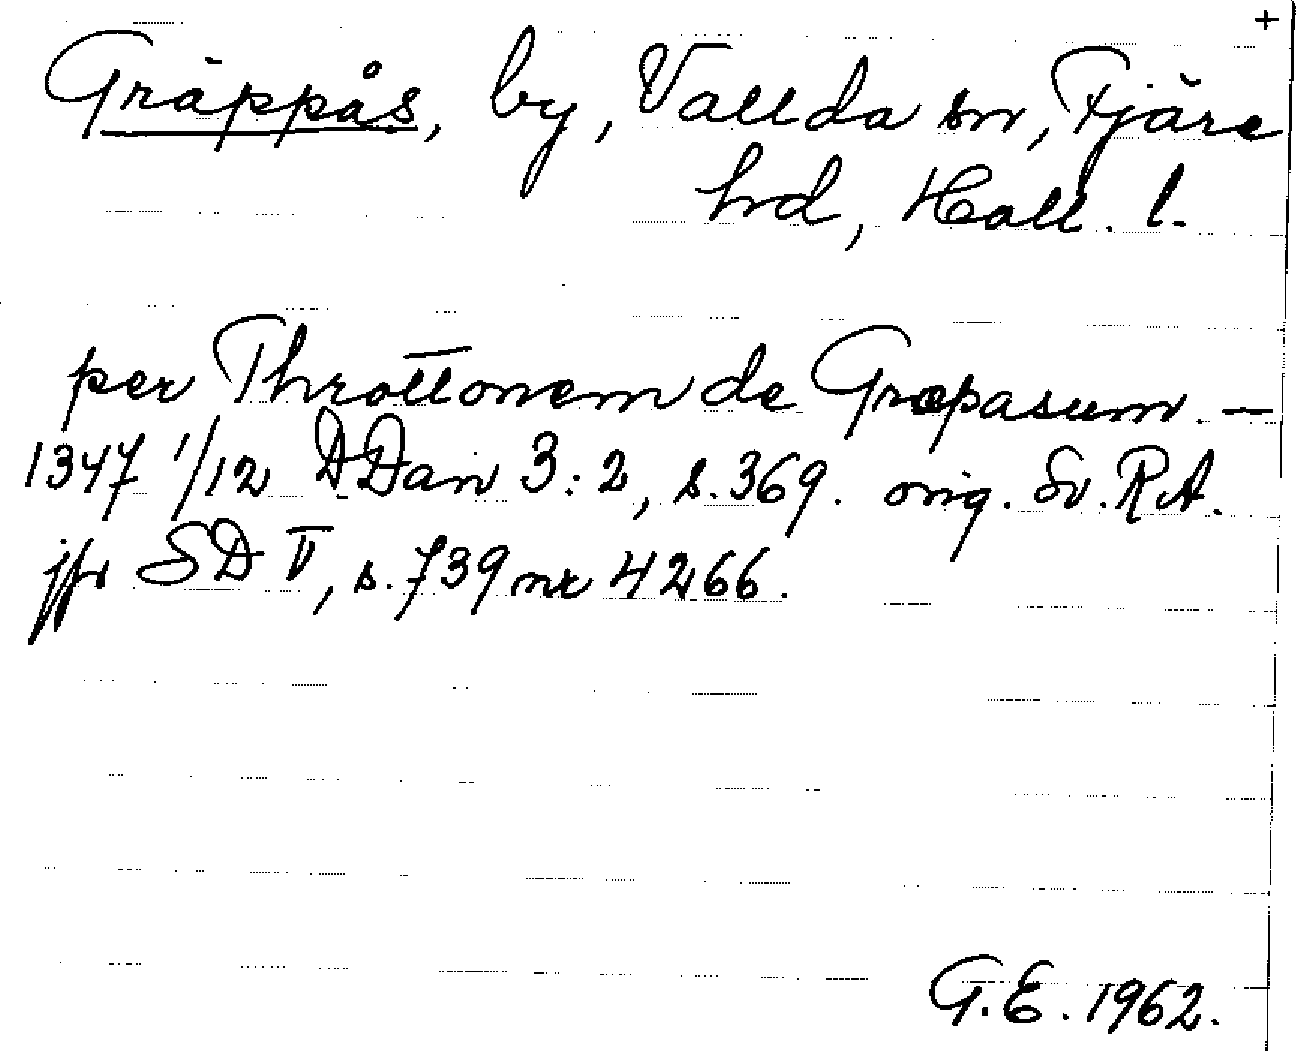 +
Gräppås, by, Vallda sn, Fjäre
hd, Hall. l.
per Throttonem de Græpasum. —
1347 1/12 DDan 3:2, s. 369. orig. Sv. RA.
jfr SD V, s. 739 nr 4266.
G.E. 1962.